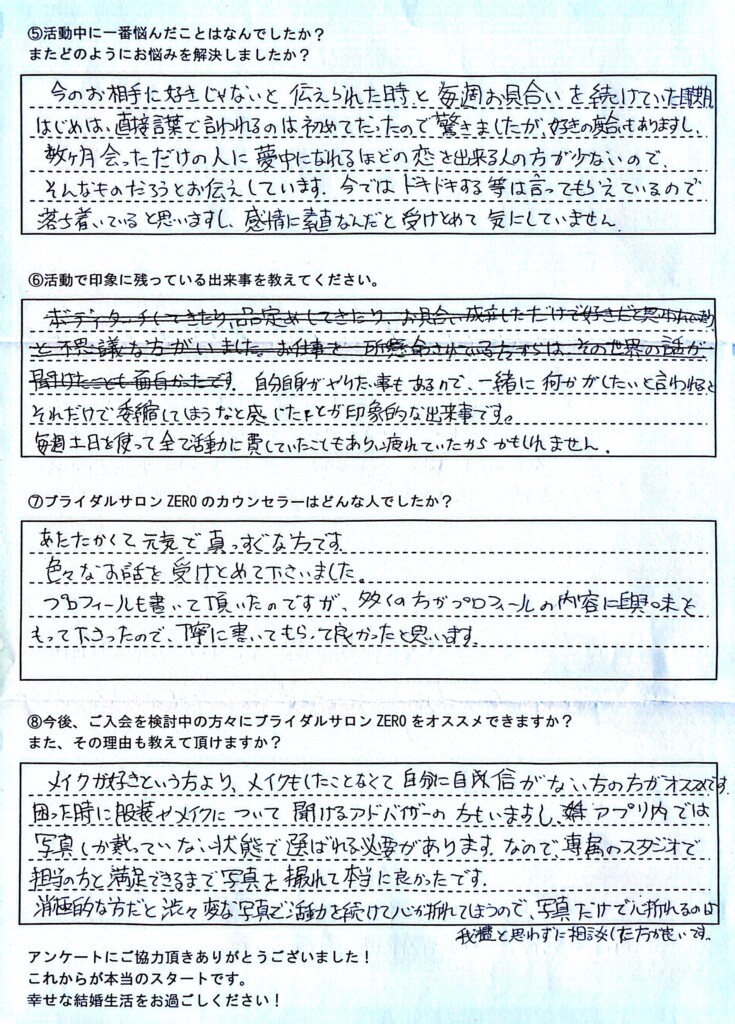 ⑤活動中に一番悩んだことはなんでしたか？
またどのようにお悩みを解決しましたか？
今のお相手に好きじゃないと伝えられた時と毎週お見合いを続けていた時期
はじめは、直接言葉で言われるのは初めてだったので驚きましたが、好きの度合もありますし、
数ヶ月会っただけの人に夢中になれるほどの恋を出来る人の方が少ないので、
そんなものだろうとお伝えしています。今ではドキドキする等は言ってもらえているので
落ち着いていると思いますし、感情に素直なんだと受けとめて気にしていません。
⑥活動で印象に残っている出来事を教えてください。
ボディタッチしてきたり、品定めしてきたり、お見合い成立しただけで好きだと思われていたり
と不思議な方がいました。お仕事を一所懸命されている方からは、その世界の話が
聞けたことも面白かったです。自分自身がやりたい事もあるので、一緒に何かがしたいと言われると
それだけで委縮してしまうなと感じたことが印象的な出来事です。
毎週土日を使って全て活動に費していたこともあり、疲れていたからかもしれません。
⑦ブライダルサロン ZERO のカウンセラーはどんな人でしたか？
あたたかくて元気で真っすぐな方です。
色々なお話を受けとめて下さいました。
プロフィールも書いて頂いたのですが、多くの方がプロフィールの内容に興味を
もって下さったので、丁寧に書いてもらって良かったと思います。
⑧今後、ご入会を検討中の方々にブライダルサロン ZERO をオススメできますか？
また、その理由も教えて頂けますか？
メイクが好きという方より、メイクもしたことなくて自分に自信がない方の方がオススメです。
困った時に服装やメイクについて聞けるアドバイザーの方もいますし、アプリ内では
写真しか載っていない状態で選ばれる必要があります。なので、専属のスタジオで
担当の方と満足できるまで写真を撮れて本当に良かったです。
消極的な方だと渋々変な写真で活動を続けて心が折れてしまうので、写真だけで心折れるのは
我儘と思わずに相談した方が良いです。
アンケートにご協力頂きありがとうございました！
これからが本当のスタートです。
幸せな結婚生活をお過ごしください！